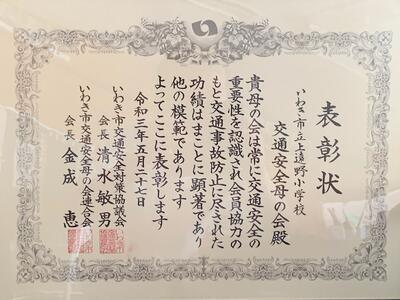 表彰状
いわき市立上遠野小学校
交通安全母の会殿
貴母の会は常に交通安全の
重要性を認識され会員協力の
もと交通事故防止に尽された
功績はまことに顕著であり
他の模範であります
よってここに表彰します
令和三年五月二十七日
いわき市交通安全対策協議会
会長 清水敏男
いわき市交通安全母の会連合会
会長 金成 恵